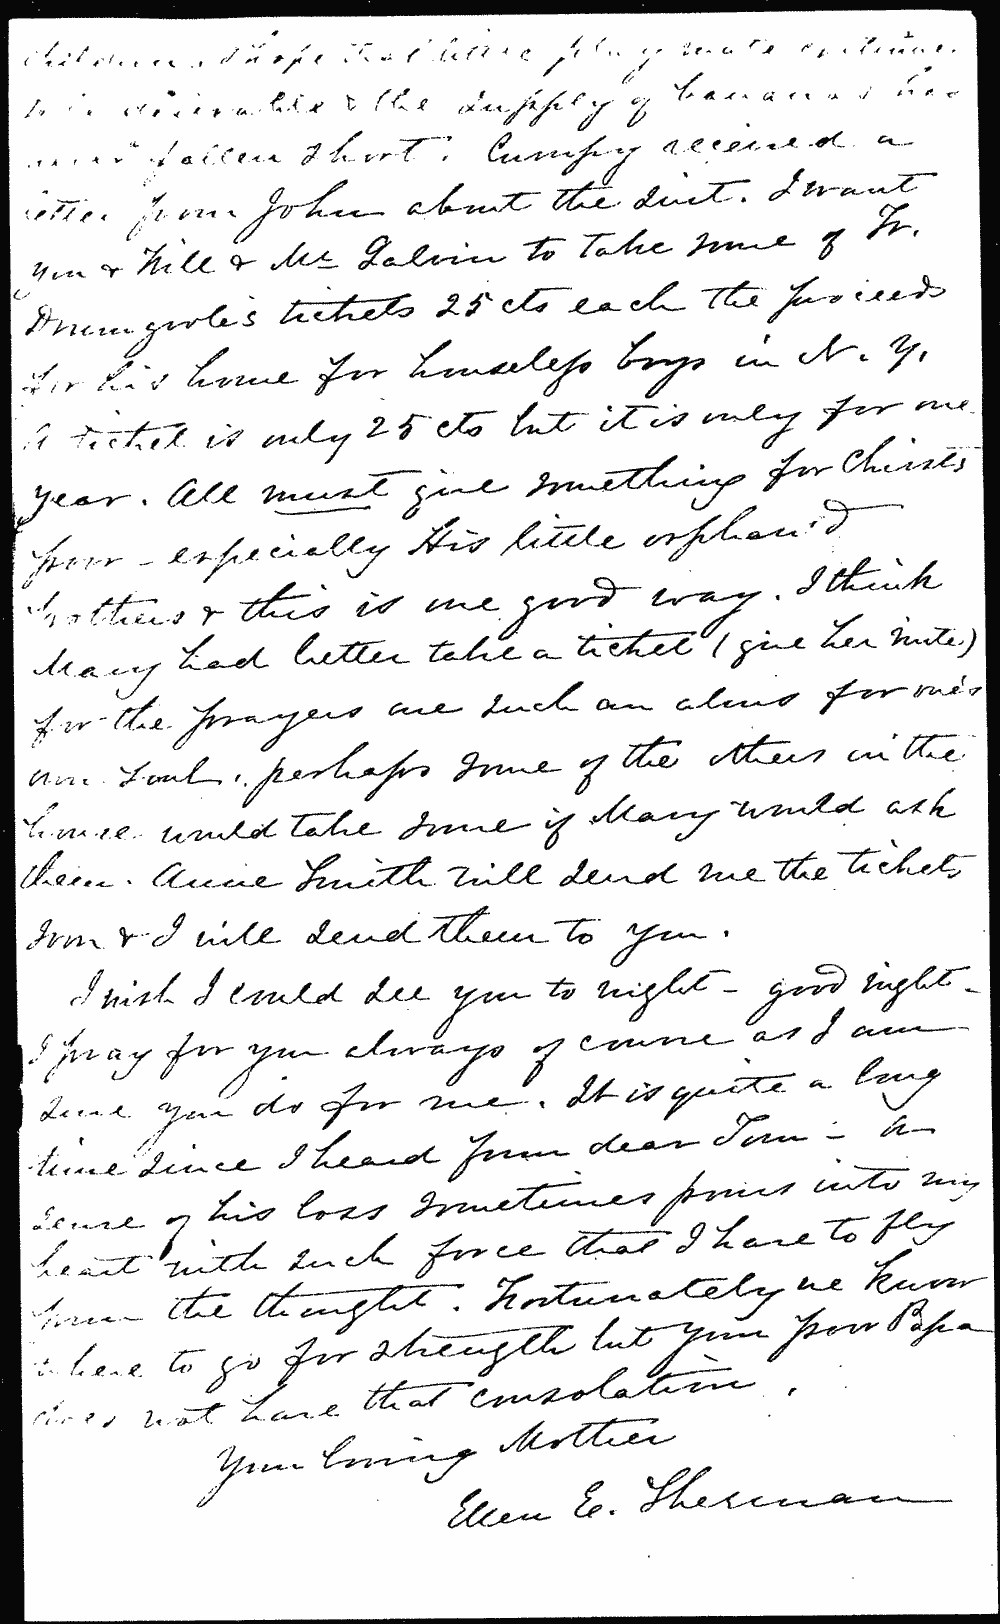 children. I hope that little play mate continues
to be desirable & the supply of bananas has
never fallen short. Cumpy received a
letter from John about the suit. I want
you & Will & Mr Galvin to take some of Fr.
Drumgoole's tickets 25 cts each the proceeds
for his home for houseless boys in N. Y.
A ticket is only 25 cts but it is only for one
year. All must give something for Christ's
poor - especially His little orphan'd
brothers & this is one good way. I think
Mary had better take a ticket (give her mite)
for the prayers are such an alms for one's
own soul. perhaps some of the others in the
house would take some if Mary would ask
them. Annie Smith will send me the tickets
soon & I will send them to you.
I wish I could see you to night - good night -
I pray for you always of course as I am
sure you do for me. It is quite a long
time since I heard from dear Tom - a
sense of his loss sometimes pours into my
heart with such force that I have to fly
from the thought. Fortunately we know
where to go for strength but your poor Papa
does not have that consolation.
Your loving Mother
Ellen E. Sherman